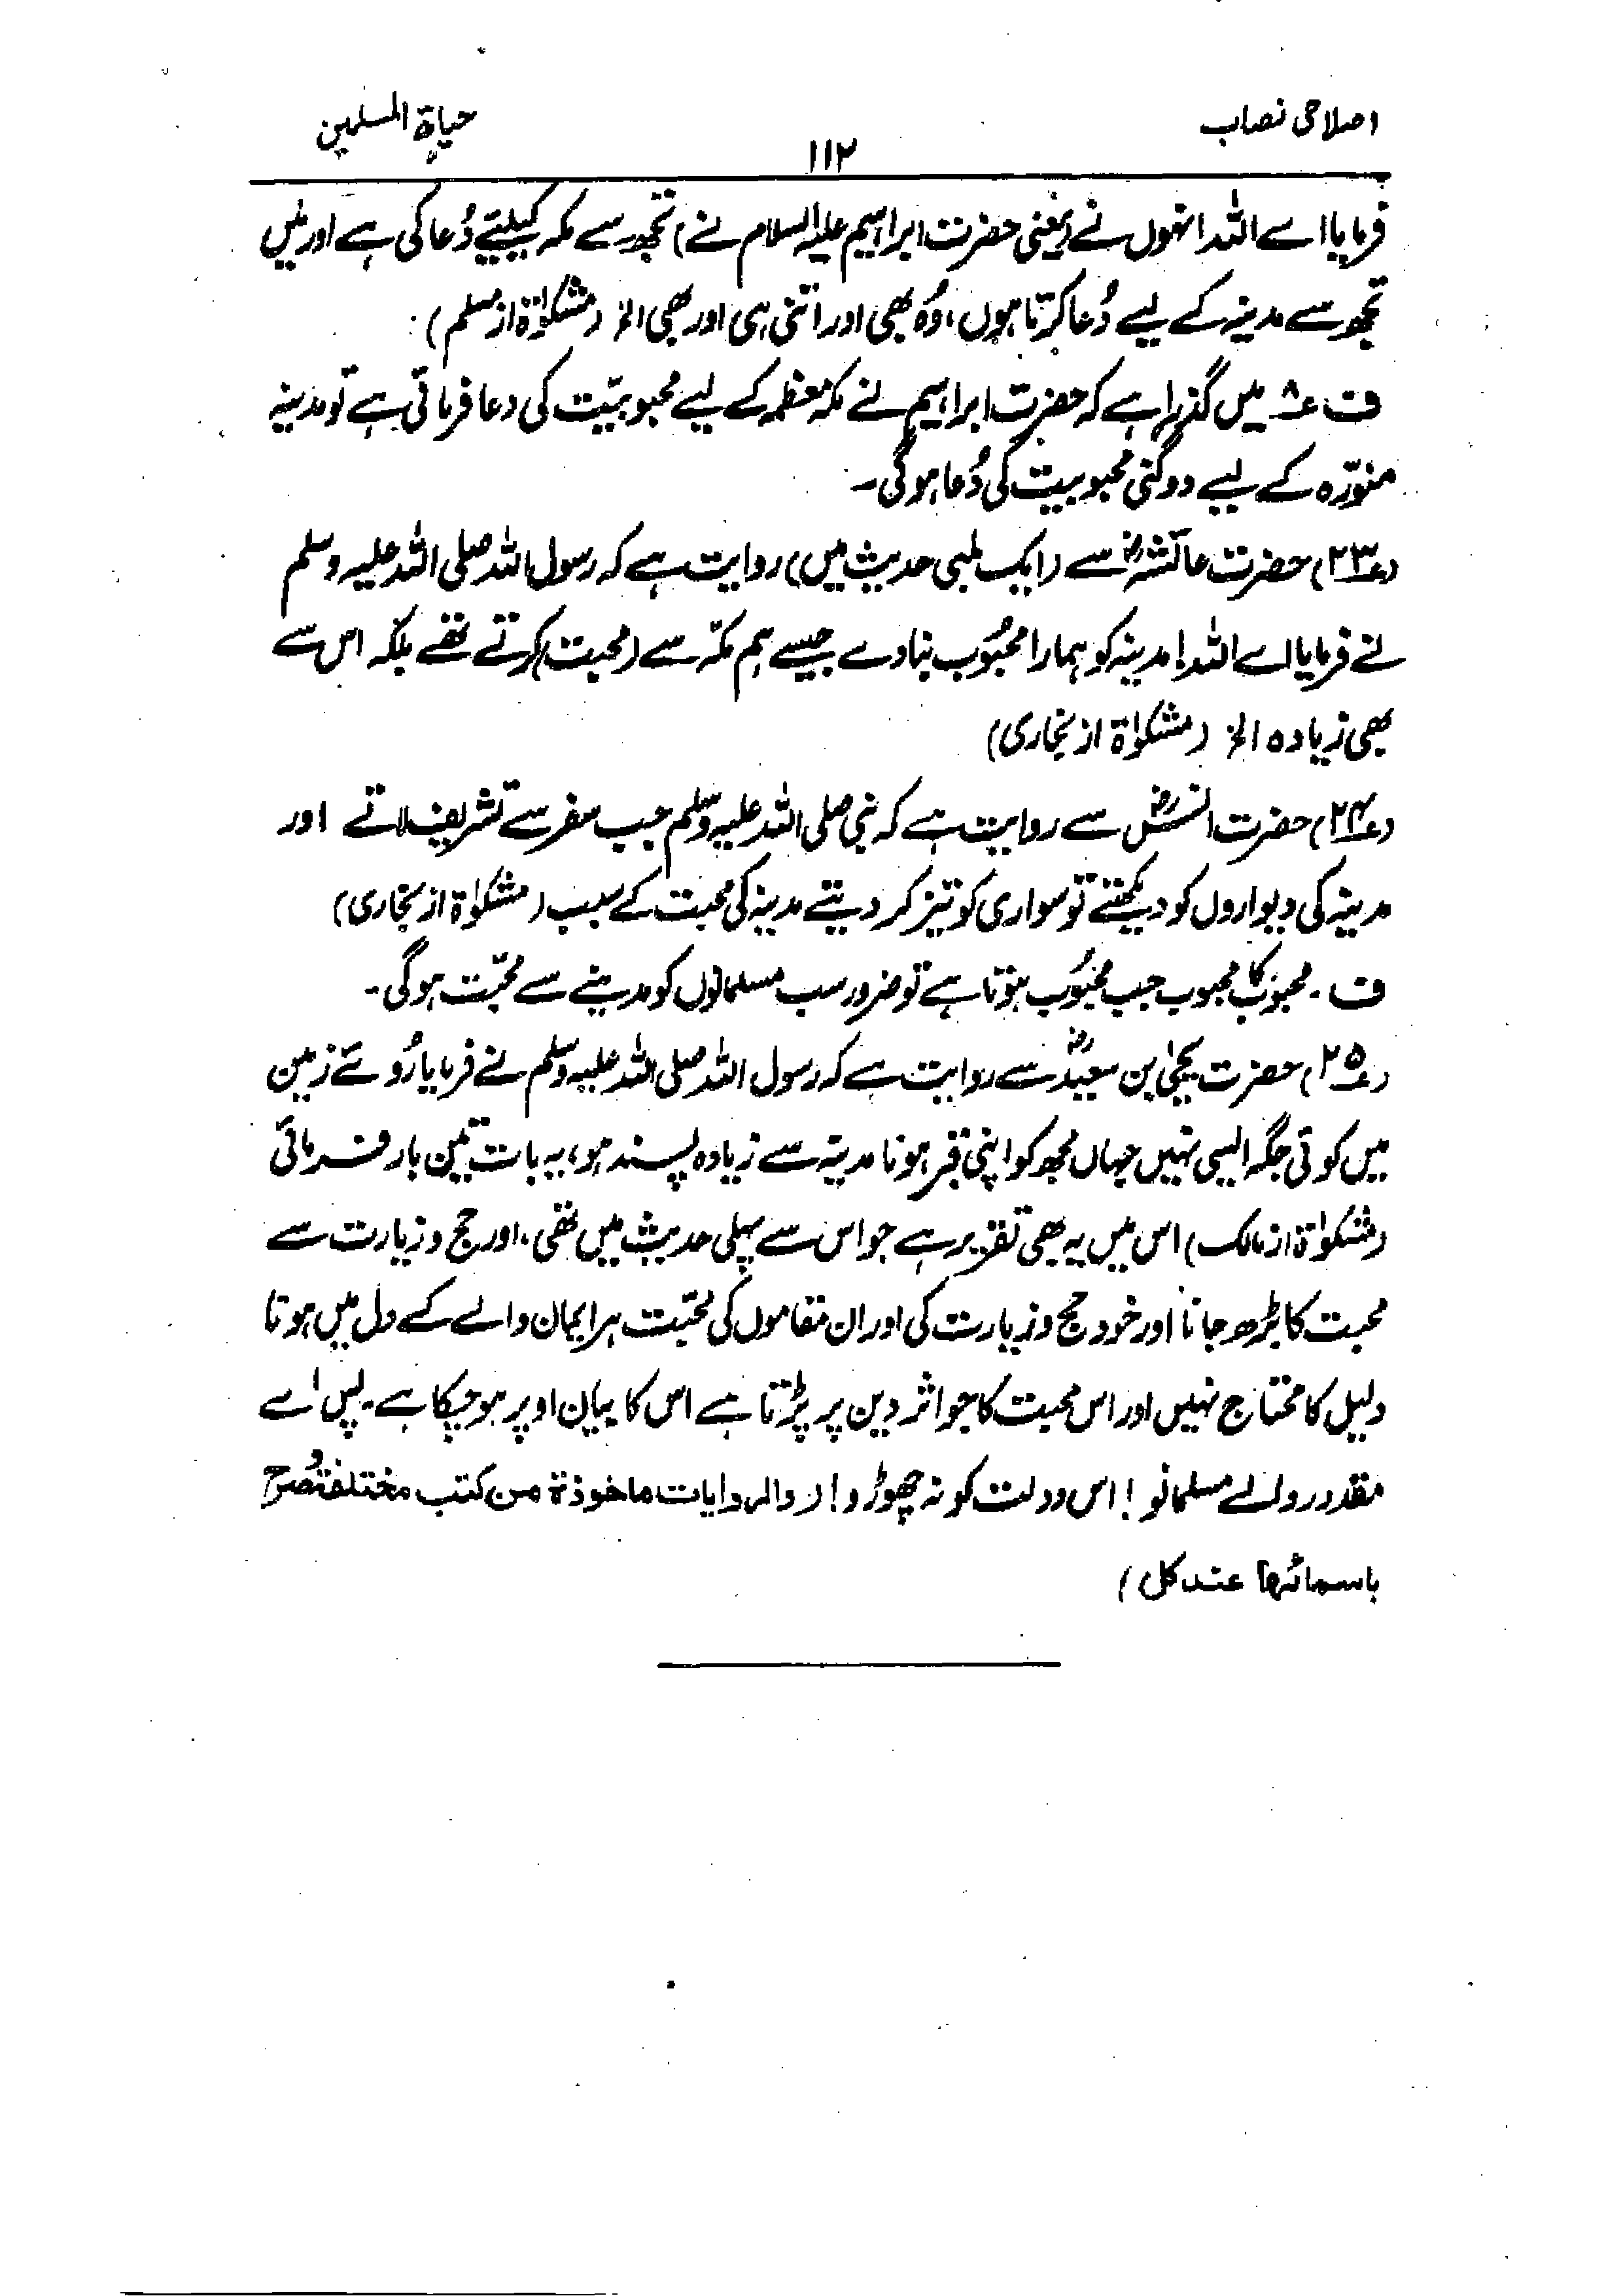 اصلاحی نصاب
۱۱۲
حیاۃ المسلمین
فرمایا اے اللہ انہوں نے (یعنی حضرت ابراہیم علیہ السلام نے) تجھ سے مکہ کیلئے دُعا کی ہے اور میں
تجھ سے مدینہ کے لیے دُعا کرتا ہوں، وُہ بھی اور اتنی ہی اور بھی الخ (مشکوٰۃ از مسلم)
ف ۸؎ میں گذرا ہے کہ حضرت ابراہیم نے مکہ معظمہ کے لیے محبوبیّت کی دعا فرمائی ہے تو مدینہ
منوّرہ کے لیے دوگنی محبوبیت کی دُعا ہوگی۔
(۲۳؎) حضرت عائشہؓ سے (ایک لمبی حدیث میں) روایت ہے کہ رسول اللہ صلی اللہ علیہ وسلم
نے فرمایا اے اللہ! مدینہ کو ہمارا محبُوب بنا دے جیسے ہم مکّہ سے (محبت) کرتے تھے بلکہ اس سے
بھی زیادہ الخ (مشکوٰۃ از بخاری)
(۲۴؎) حضرت انسؓ سے روایت ہے کہ نبی صلی اللہ علیہ وسلم جب سفر سے تشریف لاتے اور
مدینہ کی دیواروں کو دیکھتے تو سواری کو تیز کر دیتے مدینہ کی محبت کے سبب (مشکوٰۃ از بخاری)
ف۔ محبوب کا محبوب جب محبُوب ہوتا ہے تو ضرور سب مسلمانوں کو مدینے سے محبّت ہوگی۔
(۲۵؎) حضرت یحییٰ بن سعیدؓ سے روایت ہے کہ رسول اللہ صلی اللہ علیہ وسلم نے فرمایا رُوئے زمین
میں کوئی جگہ ایسی نہیں جہاں مجھ کو اپنی قبر ہونا مدینہ سے زیادہ پسند ہو، یہ بات تین بار فرمائی
(مشکوٰۃ از مالک) اس میں یہ بھی تقریر ہے جو اس سے پہلی حدیث میں تھی، اور حج و زیارت سے
محبت کا بڑھ جانا اور خود حج و زیارت کی اور ان مقاموں کی محبّت ہر ایمان والے کے دل میں ہونا
دلیل کا محتاج نہیں اور اس محبت کا جو اثر دین پر پڑتا ہے اس کا بیان اوپر ہو چکا ہے۔ پس اے
مقدور والے مسلمانو! اس دولت کو نہ چھوڑو! (والروایات ماخوذۃ من کتب مختلفۃ صُرح
باسمائہا عند کل)